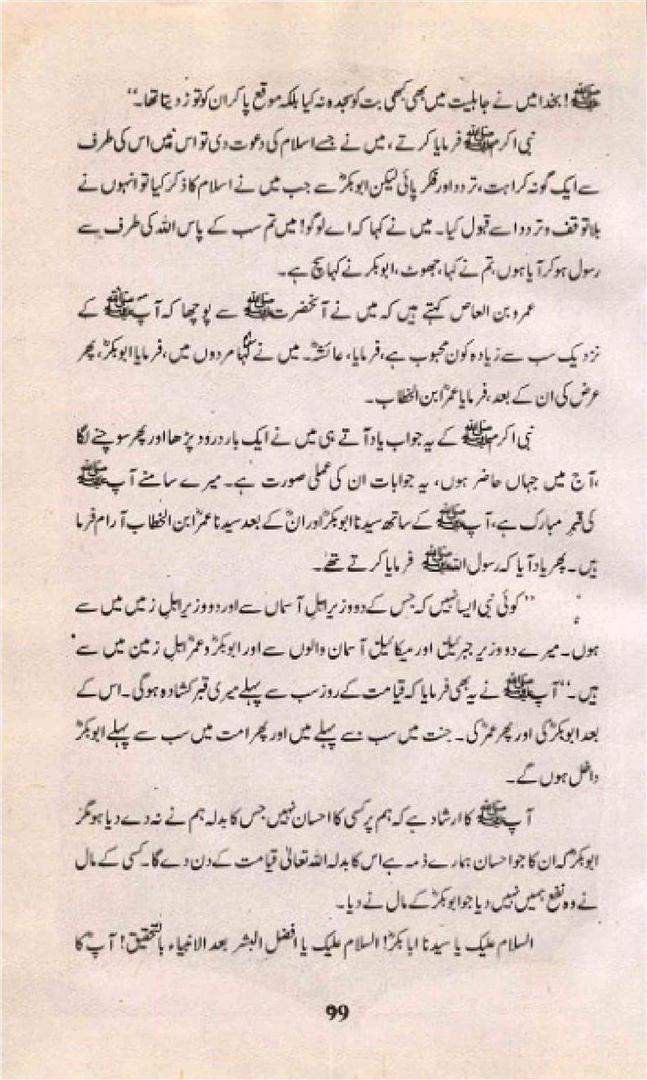 ﷺ! بخدا میں نے جاہلیت میں بھی کبھی بت کو سجدہ نہ کیا بلکہ موقع پا کر ان کو توڑ دیتا تھا۔‘‘
نبی اکرم ﷺ فرمایا کرتے، میں نے جسے اسلام کی دعوت دی تو اس نیں اس کی طرف
سے ایک گونہ کراہت، تردد اور فکر پائی لیکن ابوبکرؓ سے جب میں نے اسلام کا ذکر کیا تو انہوں نے
بلا توقف و تردد اسے قبول کیا۔ میں نے کہا کہ اے لوگو! میں تم سب کے پاس اللہ کی طرف سے
رسول ہو کر آیا ہوں، تم نے کہا، جھوٹ، ابوبکر نے کہا سچ ہے۔
عمرو بن العاص کہتے ہیں کہ میں نے آنحضرت ﷺ سے پوچھا کہ آپ ﷺ کے
نزدیک سب سے زیادہ کون محبوب ہے، فرمایا، عائشہؓ۔ میں نے کہا مردوں میں، فرمایا ابوبکرؓ، پھر
عرض کی ان کے بعد، فرمایا عمرؓ ابن الخطاب۔
نبی اکرم ﷺ کے یہ جواب یاد آتے ہی میں نے ایک بار درود پڑھا اور پھر سوچنے لگا
،آج میں جہاں حاضر ہوں، یہ جوابات ان کی عملی صورت ہے۔ میرے سامنے آپ ﷺ
کی قبر مبارک ہے، آپ ﷺ کے ساتھ سیدنا ابوبکرؓ اور انؓ کے بعد سیدنا عمرؓ ابن الخطاب آرام فرما
ہیں۔ پھر یاد آیا کہ رسول اللہ ﷺ فرمایا کرتے تھے۔
’’کوئی نبی ایسا نہیں کہ جس کے دو وزیر اہلِ آسماں سے اور دو وزیر اہلِ زمیں میں سے
ہوں۔ میرے دو وزیر جبرئیلؑ اور میکائیلؑ آسمان والوں سے اور ابوبکرؓ و عمرؓ اہلِ زمین میں سے
ہیں۔‘‘ آپ ﷺ نے یہ بھی فرمایا کہ قیامت کے روز سب سے پہلے میری قبر کشادہ ہوگی۔ اس کے
بعد ابوبکرؓ کی اور پھر عمرؓ کی۔ جنت میں سب سے پہلے میں اور پھر امت میں سب سے پہلے ابوبکرؓ
داخل ہوں گے۔
آپ ﷺ کا ارشاد ہے کہ ہم پر کسی کا احسان نہیں جس کا بدلہ ہم نے نہ دے دیا ہو مگر
ابوبکرؓ کہ ان کا جو احسان ہمارے ذمہ ہے اس کا بدلہ اللہ تعالیٰ قیامت کے دن دے گا۔ کسی کے مال
نے وہ نفع ہمیں نہیں دیا جو ابوبکرؓ کے مال نے دیا۔
السلام علیک یا سیدنا ابابکرؓ! السلام علیک یا افضل البشر بعد الانبیاء بالتحقیق! آپؓ کا
99